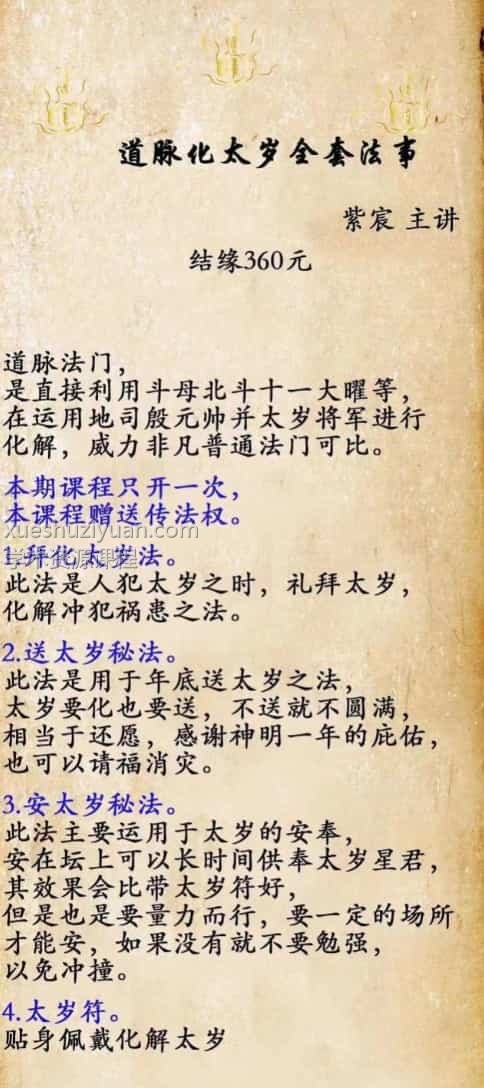 道脉化太岁全套法事
紫宸 主讲
结缘360元
道脉法门，
是直接利用斗母北斗十一大曜等，
在运用地司殷元帅并太岁将军进行
化解，威力非凡普通法门可比。
本期课程只开一次，
本课程赠送传法权。
xueshuziyuan.com
1.拜化太岁法。
此法是人犯太岁之时，礼拜太岁，
化解冲犯祸患之法。
2.送太岁秘法。
此法是用于年底送太岁之法，
太岁要化也要送，不送就不圆满，
相当于还愿，感谢神明一年的庇佑，
也可以请福消灾。
3.安太岁秘法。
此法主要运用于太岁的安奉，
安在坛上可以长时间供奉太岁星君，
其效果会比带太岁符好，
但是也是要量力而行，要一定的场所
才能安，如果没有就不要勉强，
以免冲撞。
4.太岁符。
贴身佩戴化解太岁